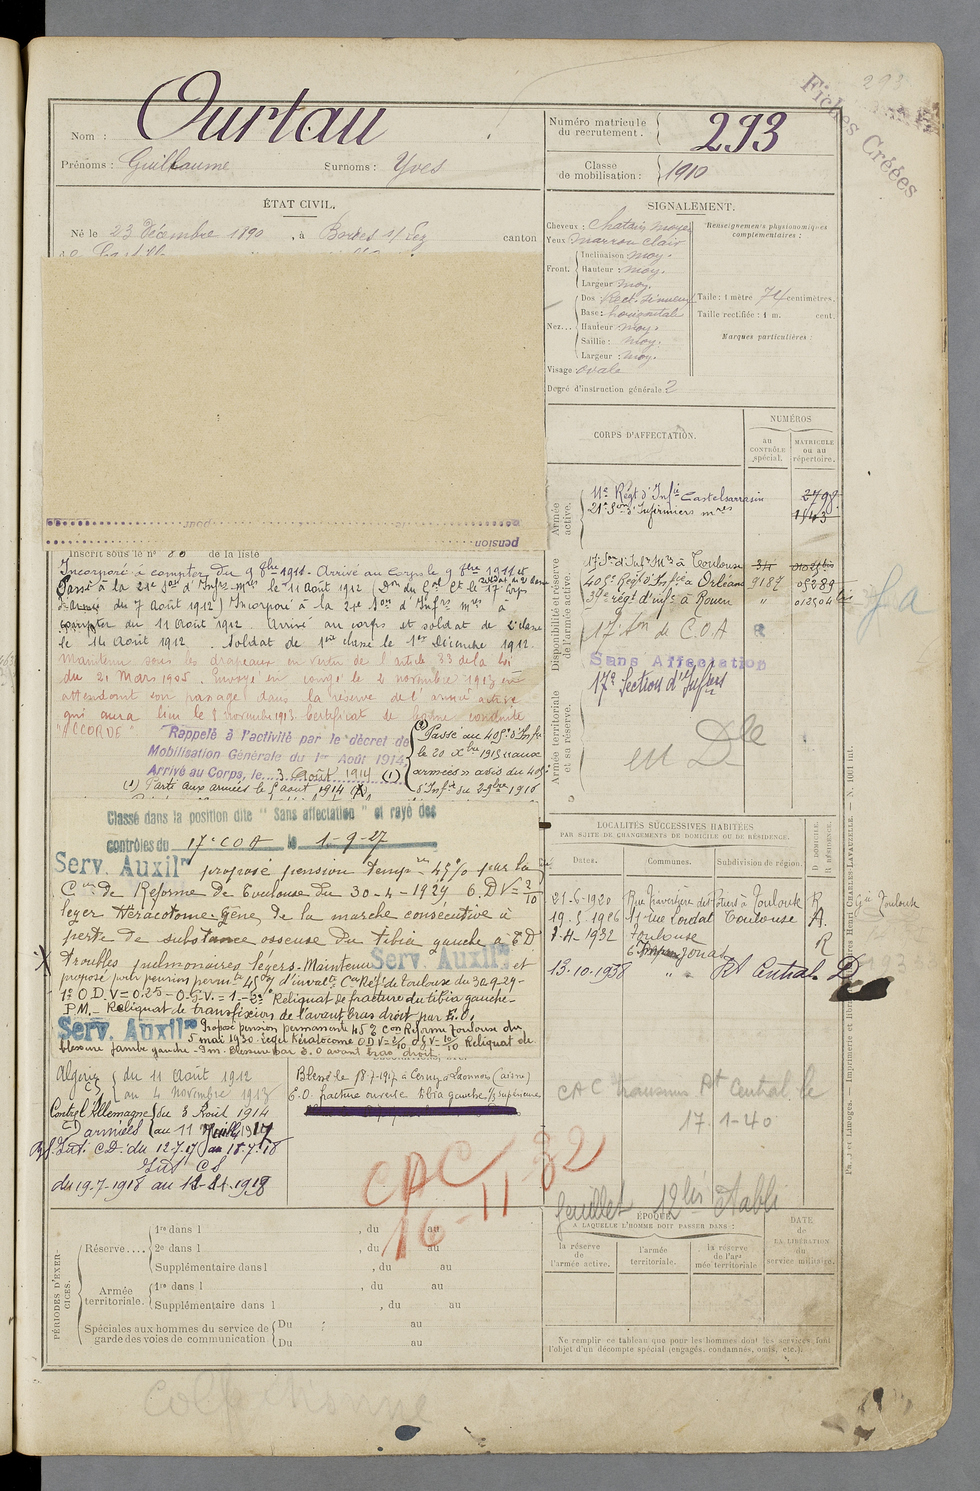 293
Fiches Créées
Nom : Ourtau
Prénoms : Guillaume Surnoms : Yves
Numéro matricule du recrutement. 293
Classe de mobilisation : 1910
ÉTAT CIVIL.
Né le 23 Décembre 1890, à Bordes s/Lez canton
SIGNALEMENT.
Cheveux : Chatain moyen
Yeux marron clair
Front. Inclinaison moy.
Hauteur : moy.
Largeur moy.
Nez... Dos : Rect. sinueux
Base : horizontale
Hauteur moy.
Saillie : moy.
Largeur : moy.
Visage : ovale
Degré d'instruction générale 2
Renseignements physionomiques complémentaires :
Taille : 1 mètre 74 centimètres.
Taille rectifiée : 1 m. cent.
Marques particulières :
CORPS D'AFFECTATION.
NUMÉROS
au CONTRÔLE spécial.
MATRICULE ou au répertoire.
Armée active.
11e Régt d'Infie Castelsarrasin 2798
21e Son d'Infirmiers mres 1943
Disponibilité et réserve de l'armée active.
17e Son d'Infrs Mres à Toulouse
405e Régt d'Infie à Orléans 9187 05289
39e régt d'infie à Rouen " 012504 bis
17e Son de C.O.A R
Sans Affectation
Armée territoriale et sa réserve.
17e Section d'Infrers
en Dle
fa
pension
Inscrit sous le n° 80 de la liste
Incorporé à compter du 9 8bre 1911. Arrivé au Corps le 9 8bre 1911 et soldat de 2e classe
Passé à la 21e Son d'Infrs mres le 11 Août 1912 (Don du Gal Ct le 17e Corps
d'armée du 7 Août 1912) Incorporé à la 21e Son d'Infrs mres à
compter du 11 Août 1912. Arrivé au corps et soldat de 2e classe
le 14 Août 1912. Soldat de 1ere classe le 1er Décembre 1912.
Maintenu sous les drapeaux en vertu de l'article 33 de la loi
du 21 Mars 1905. Envoyé en congé le 2 novembre 1913 en
attendant son passage dans la réserve de l'armée active
qui aura lieu le 8 novembre 1913 Certificat de bonne conduite
"ACCORDÉ"
Rappelé à l'activité par le décret de
Mobilisation Générale du 1er Août 1914
Arrivé au Corps, le 3 Août 1914 (1)
(1) Parti aux armées le 5 aout 1914 (X)
(X) Passé au 405e d'Infie
le 20 Xbre 1915 (aux
armées) avis du 405e
d'Infie du 29 Xbre 1915
Classé dans la position dite "Sans affectation" et rayé des
contrôles du 17e COA le 1-9-27
Serv. Auxilre proposé pension temp. 45% par la
Con de Réforme de Toulouse du 30-4-1929 O.D V=2/10
leger Kéracotome. Gêne de la marche consécutive à
perte de substance osseuse du tibia gauche.
troubles pulmonaires légers. Maintenu Serv. Auxilre et
proposé pour pension permte 45% d'inval. Con Réf. de Toulouse du 30-9-29-
1° O.D. V=0.25 - O.G.V. = 1. - 2° Reliquat de fracture du tibia gauche.
P.M. - Reliquat de transfixion de l'avant bras droit par E.O.
Serv. Auxilre Proposé pension permanente 45% Con Réforme Toulouse du
5 mai 1930. léger Kératocome OD V=2/10 OG V=10/10 Reliquat de
blessure jambe gauche. P.m. blessure par E.O avant bras droit.
Algérie du 11 Août 1912
au 4 novembre 1913
Contre l'Allemagne du 3 Août 1914
armées au 11 Juillet 1917
Int. C.D. du 12-7-17 au 18-7-18
Int CS
du 19-7-1918 au 1918
Blessé le 18-7-1917 à Cerny en Laonnois (Aisne)
E.O. fracture ouverte tibia gauche 1/3 supérieure
CAC
16-11 32
LOCALITÉS SUCCESSIVES HABITÉES
PAR SUITE DE CHANGEMENTS DE DOMICILE OU DE RÉSIDENCE.
Dates. Communes. Subdivision de région. D. DOMICILE. R. RÉSIDENCE.
21-6-1920 Toulouse R
19-8-1926 Toulouse R.
1932 Toulouse R
13-10-1938 " " Rt Central D
CAC transmis Rt Central le
17-1-40
feuillet 12bis établi
ÉPOQUE
A LAQUELLE L'HOMME DOIT PASSER DANS :
la réserve de l'armée active.
l'armée territoriale.
la réserve de l'armée territoriale
DATE de LA LIBÉRATION du service militaire.
PÉRIODES D'EXERCICES.
Réserve.... 1re dans l , du au
2e dans l , du au
Supplémentaire dans l , du au
Armée territoriale. 1re dans l , du au
Supplémentaire dans l , du au
Spéciales aux hommes du service de garde des voies de communication Du au
Du au
Ne remplir ce tableau que pour les hommes dont les services font
l'objet d'un décompte spécial (engagés, condamnés, omis, etc.).
Paris et Limoges. — Imprimerie et librairie militaires Henri CHARLES-LAVAUZELLE. — N. 1001 int.